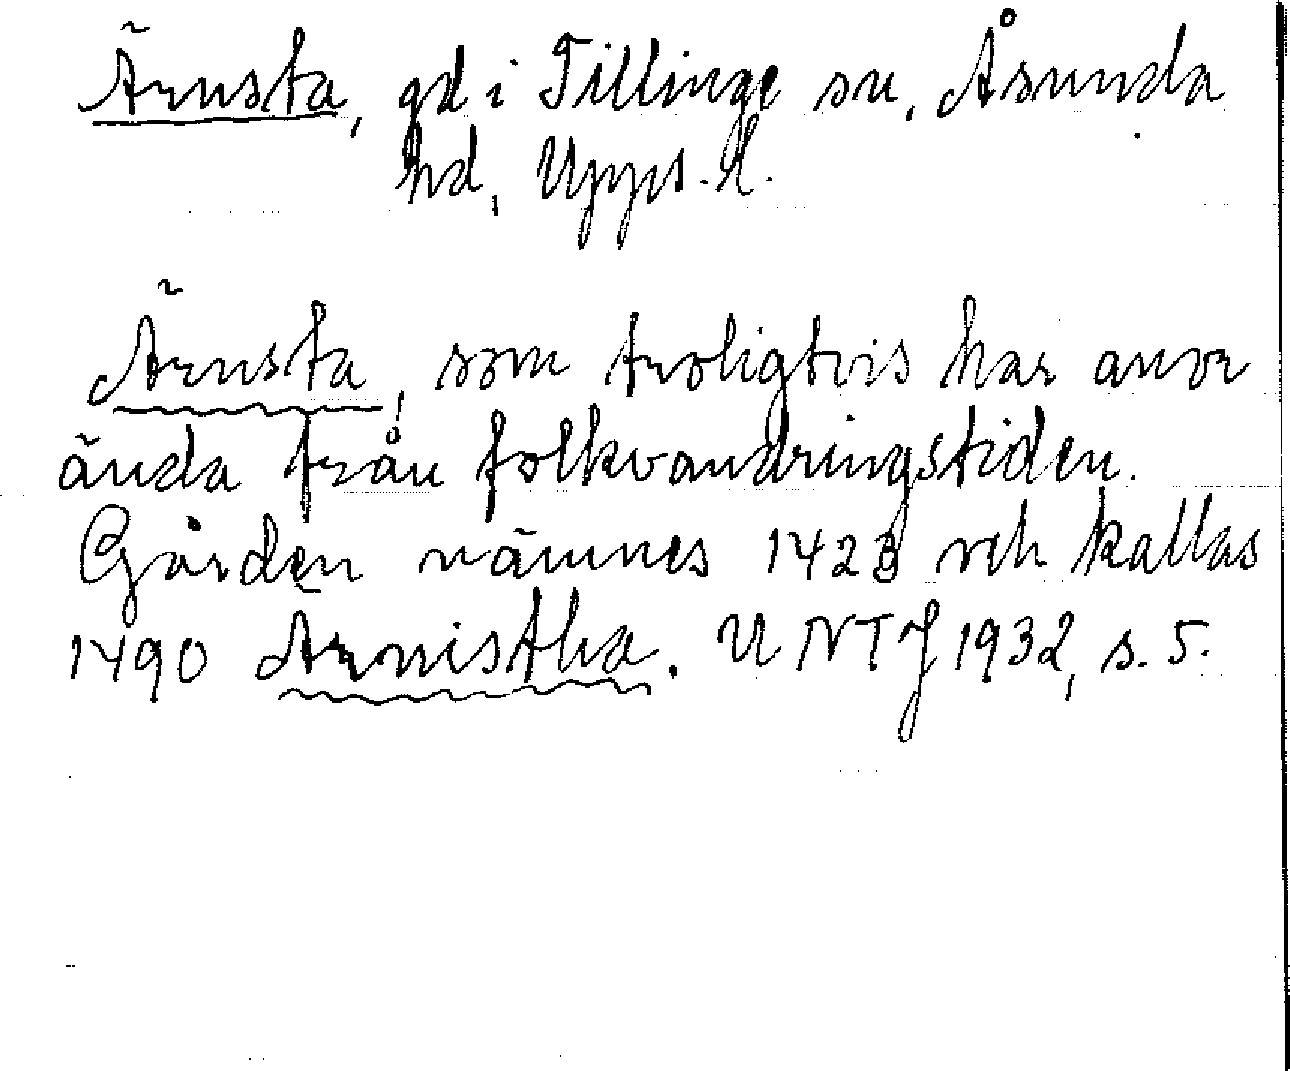 Ärnsta, gd i Tillinge sn, Åsunda
hd, Upps. l.
Ärnsta, som troligtvis har anor
ända från folkvandringstiden.
Gården nämnes 1423 och kallas
1490 Ärnistha. UNTJ 1932, s. 5.